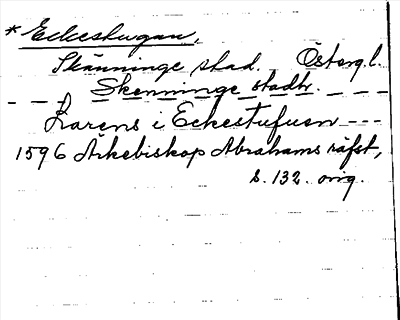 * Eckestugan,
Skänninge stad. Österg.l.
– – Skenninge stadh. – – –
Larens i Eckestufuen – – –
1596 Ärkebiskop Abrahams räfst,
s. 132. orig.